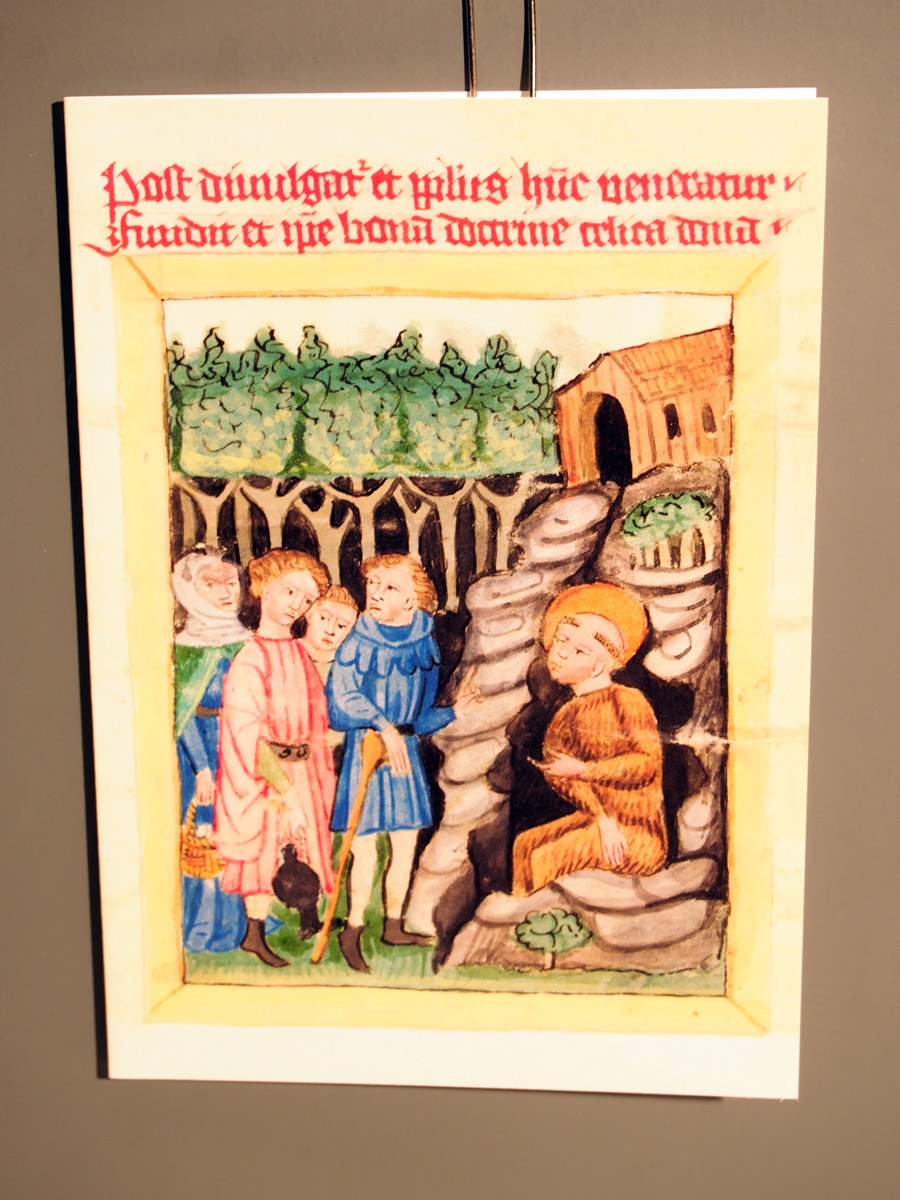 Post diuulgat² et ppl'us hūc veneratur
ꝯfundit et ip̄e bonā doctrine celica dona